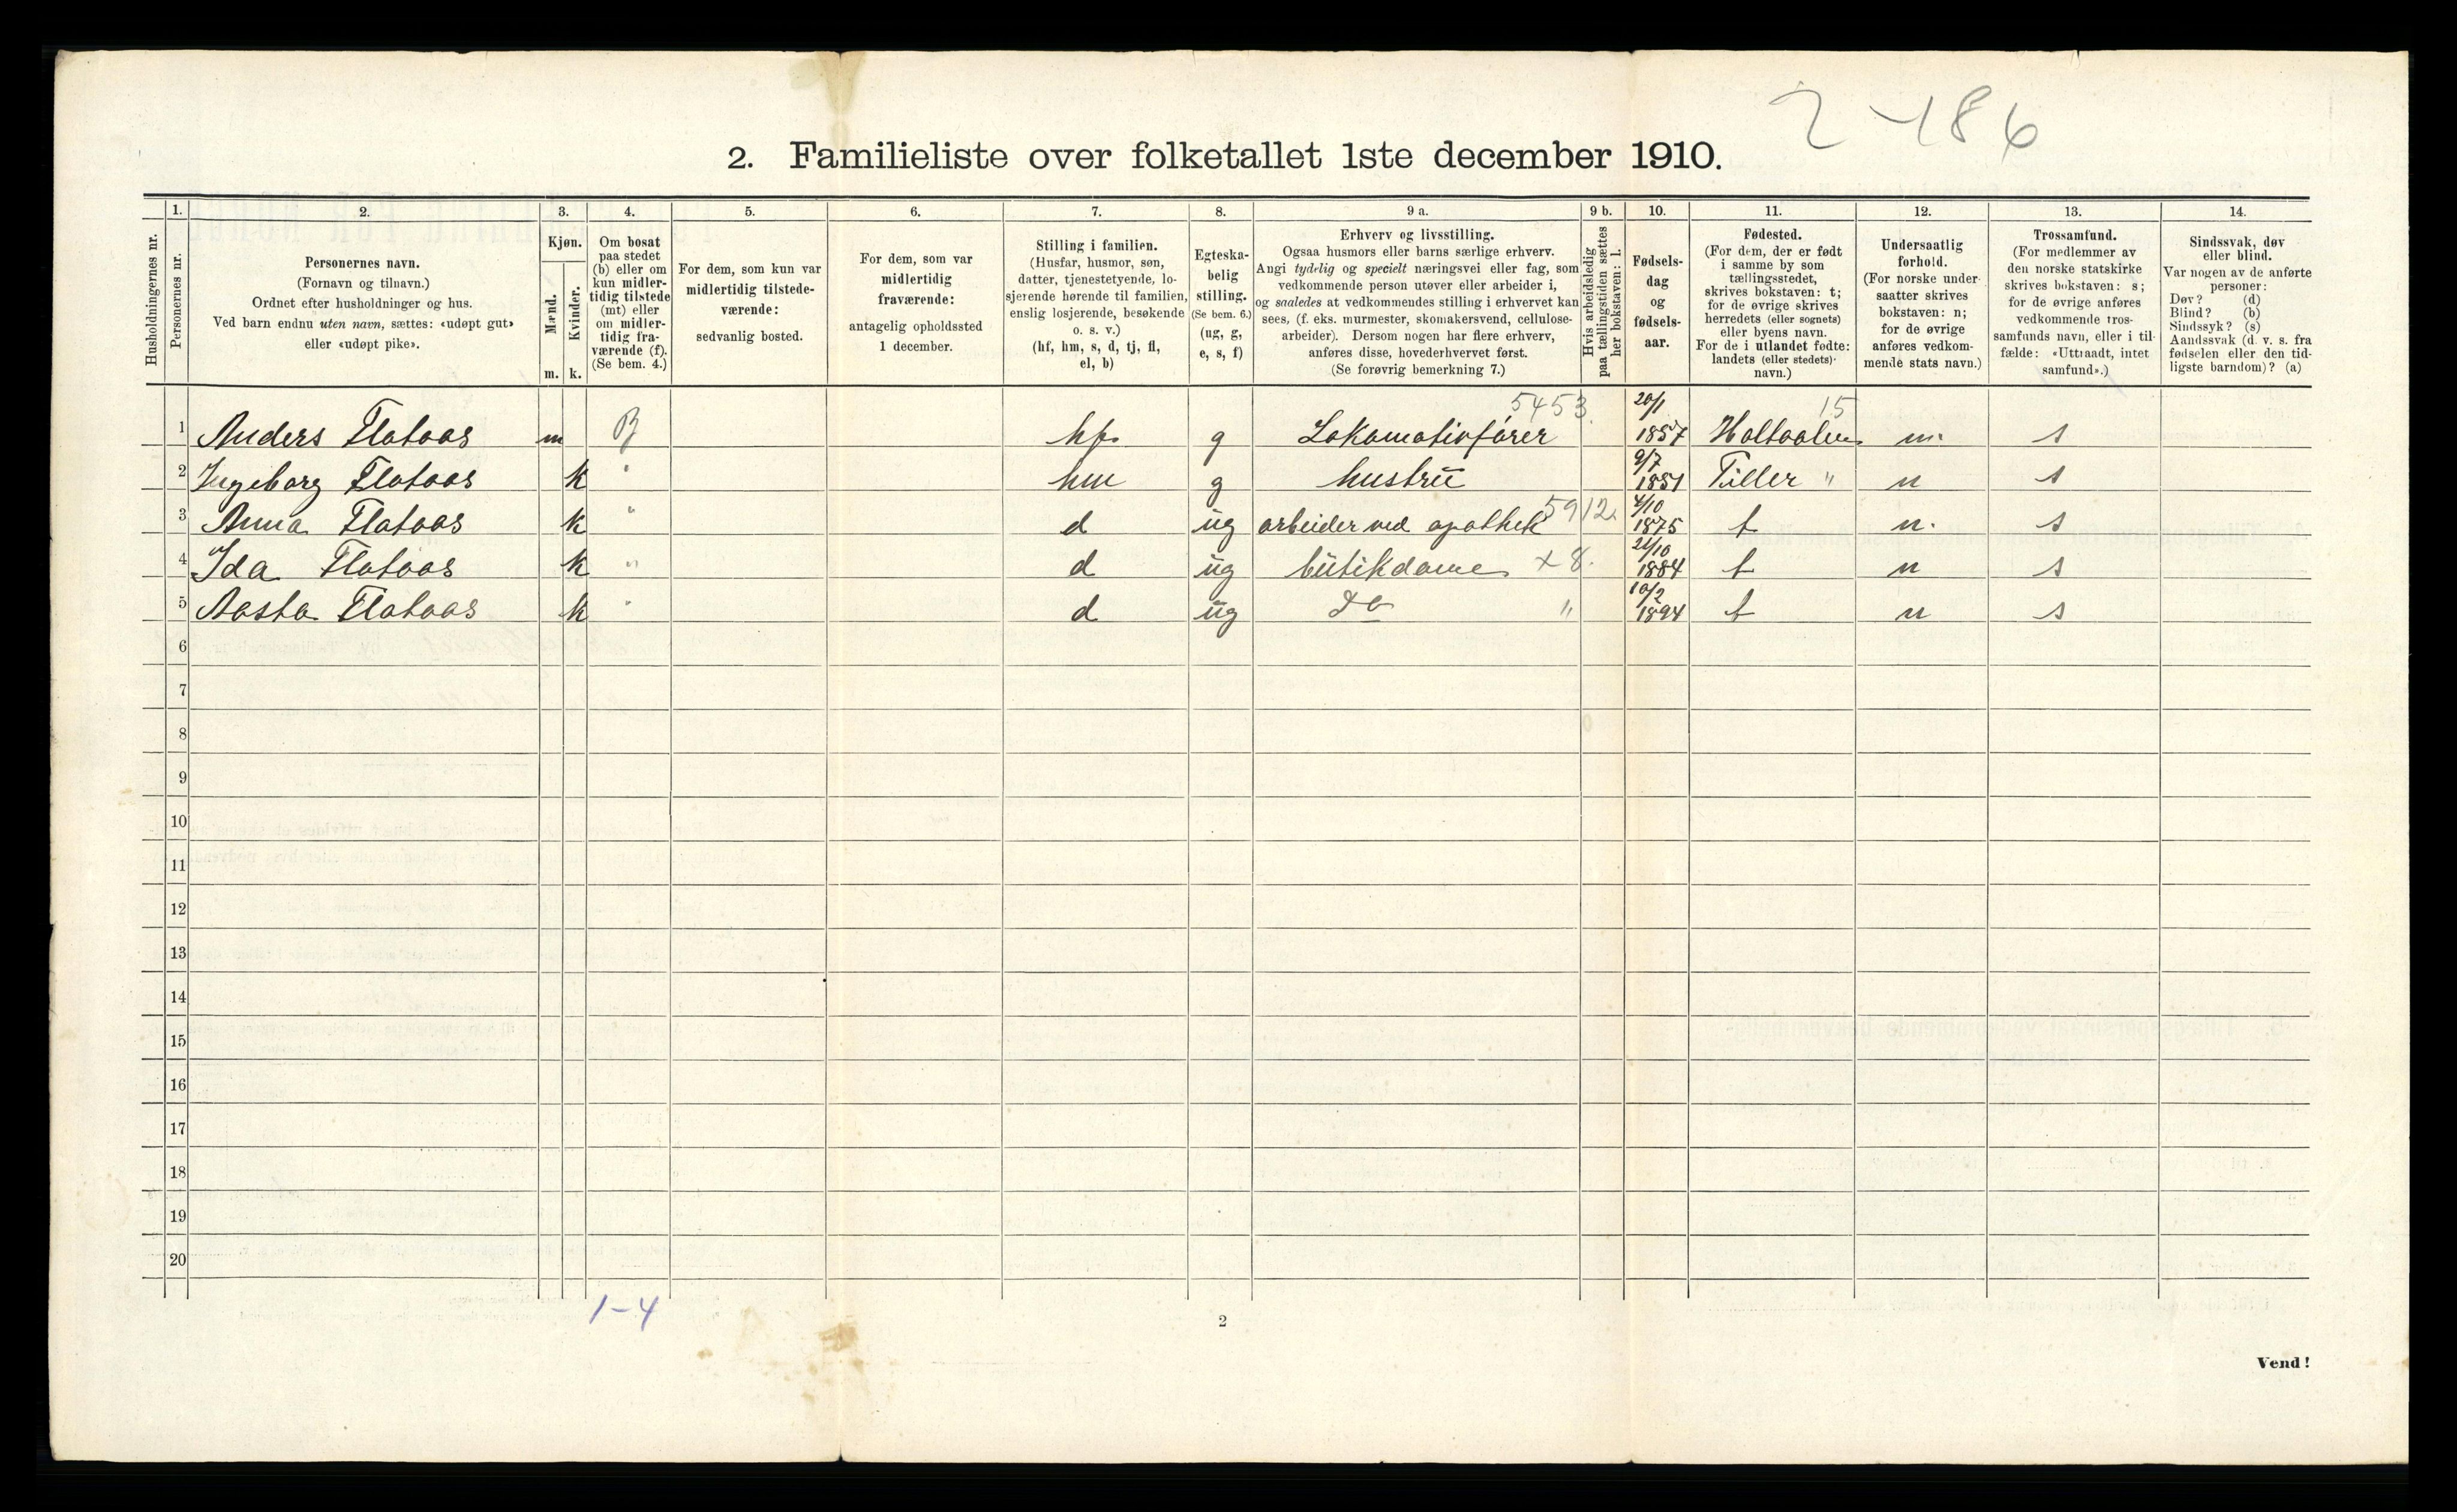 2-186
2. Familieliste over folketallet 1ste december 1910.
1. 2. 3. 4. 5. 6. 7. 8. 9 a. 9 b. 10. 11. 12. 13. 14.
Husholdningernes nr.
Personernes nr.
Personernes navn.
(Fornavn og tilnavn.)
Ordnet efter husholdninger og hus.
Ved barn endnu uten navn, sættes: «udøpt gut»
eller «udøpt pike».
Kjøn.
Mænd.
Kvinder.
m. k.
Om bosat
paa stedet
(b) eller om
kun midler-
tidig tilstede
(mt) eller
om midler-
tidig fra-
værende (f).
(Se bem. 4.)
For dem, som kun var
midlertidig tilstede-
værende:
sedvanlig bosted.
For dem, som var
midlertidig
fraværende:
antagelig opholdssted
1 december.
Stilling i familien.
(Husfar, husmor, søn,
datter, tjenestetyende, lo-
sjerende hørende til familien,
enslig losjerende, besøkende
o. s. v.)
(hf, hm, s, d, tj, fl,
el, b)
Egteska-
belig
stilling.
(Se bem. 6.)
(ug, g,
e, s, f)
Erhverv og livsstilling.
Ogsaa husmors eller barns særlige erhverv.
Angi tydelig og specielt næringsvei eller fag, som
vedkommende person utøver eller arbeider i,
og saaledes at vedkommendes stilling i erhvervet kan
sees, (f. eks. murmester, skomakersvend, cellulose-
arbeider). Dersom nogen har flere erhverv,
anføres disse, hovederhvervet først.
(Se forøvrig bemerkning 7.)
Hvis arbeidsledig
paa tællingstiden sættes
her bokstaven: l.
Fødsels-
dag
og
fødsels-
aar.
Fødested.
(For dem, der er født
i samme by som
tællingsstedet,
skrives bokstaven: t;
for de øvrige skrives
herredets (eller sognets)
eller byens navn.
For de i utlandet fødte:
landets (eller stedets)
navn.)
Undersaatlig
forhold.
(For norske under-
saatter skrives
bokstaven: n;
for de øvrige
anføres vedkom-
mende stats navn.)
Trossamfund.
(For medlemmer av
den norske statskirke
skrives bokstaven: s;
for de øvrige anføres
vedkommende tros-
samfunds navn, eller i til-
fælde: «Uttraadt, intet
samfund».)
Sindssvak, døv
eller blind.
Var nogen av de anførte
personer:
Døv? (d)
Blind? (b)
Sindssyk? (s)
Aandssvak (d. v. s. fra
fødselen eller den tid-
ligste barndom)? (a)
5453 20/1 15
1 Anders Flataas m B hf. g Lokomotivfører 1857 Holtaalen n. s
9/7
2 Ingeborg Flataas k " hm g hustru 1851 Tiller " n s
5912. 4/10
3 Anna Flataas k " d ug arbeider ved apothek 1875 t n. s
21/10
4 Ida Flataas k " d ug butikdame x 8. 1884 t n s
10/2
5 Aasta Flataas k " d ug do " 1894 t n s
6
7
8
9
10
11
12
13
14
15
16
17
18
19
20
1-4
2
Vend!